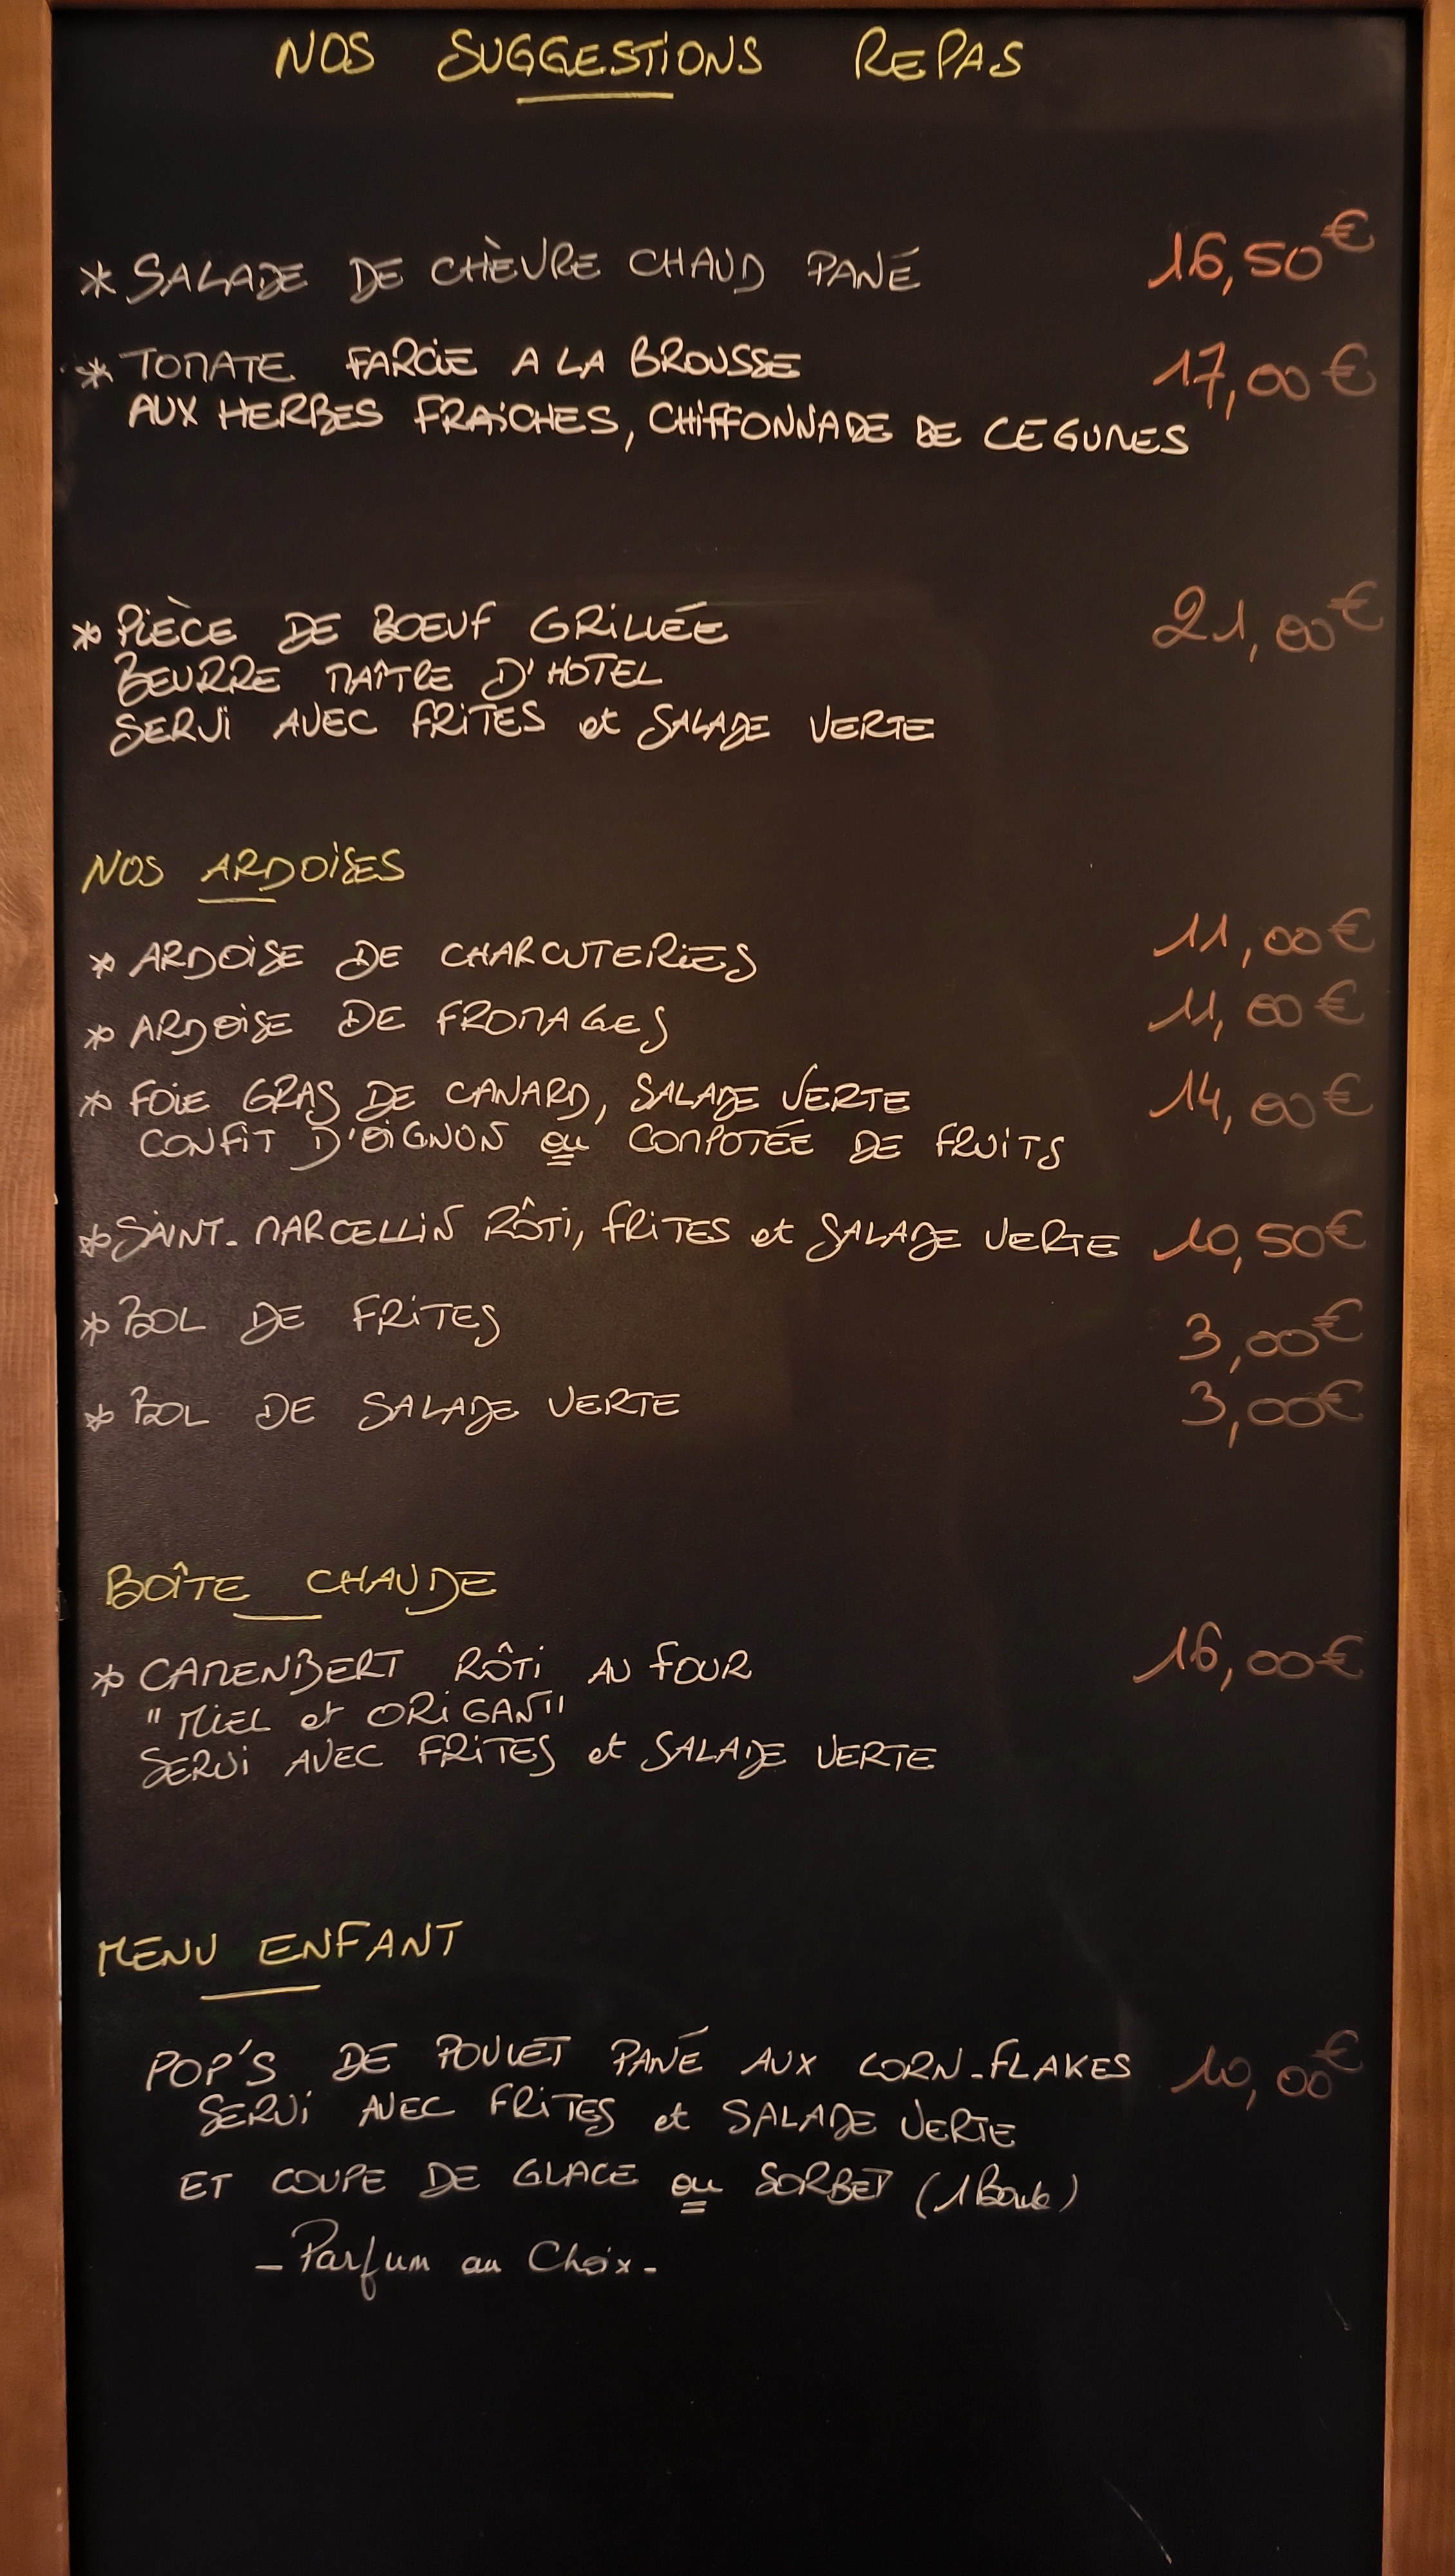 NOS SUGGESTIONS REPAS
* SALADE DE CHÈVRE CHAUD PANÉ 16,50€
* TOMATE FARCIE A LA BROUSSE 17,00€
AUX HERBES FRAiCHES, CHiFFONNADE DE LEGUMES
* PIÈCE DE BOEUF GRILLÉE 21,00€
BEURRE MAÎTRE D'HOTEL
SERVI AVEC FRITES et SALADE VERTE
NOS ARDOISES
* ARDOISE DE CHARCUTERIES 11,00€
* ARDOISE DE FROMAGES 11,00€
* FOIE GRAS DE CANARD, SALADE VERTE 14,00€
CONFIT D'OIGNON ou COMPOTÉE DE FRUITS
* SAINT-MARCELLIN RÔTI, FRITES et SALADE VERTE 10,50€
* BOL DE FRITES 3,00€
* BOL DE SALADE VERTE 3,00€
BOÎTE CHAUDE
* CAMENBERT RÔTI AU FOUR 16,00€
"MIEL et ORIGAN"
SERVI AVEC FRITES et SALADE VERTE
MENU ENFANT
POP'S DE POULET PANÉ AUX CORN-FLAKES 10,00€
SERVI AVEC FRITES et SALADE VERTE
ET COUPE DE GLACE ou SORBET (1 Boule)
- Parfum au Choix -